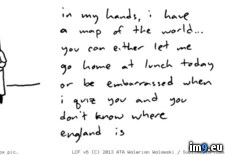 in my hands, i have
a map of the world...
you can either let me
go home at lunch today
or be embarrassed when
i quiz you and you
don't know where
england is
pic.
LCF v6 (C) 2013 ATA
im9.eu